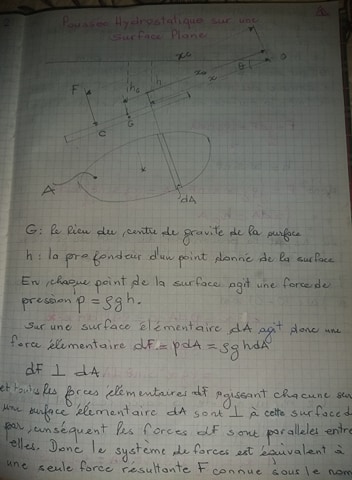 Poussée Hydrostatique sur une
surface Plane.
2
xc
F
hc
h
xG
x
θ
O
G
C
A
dA
G: le lieu du centre de gravite de la surface
h: la profondeur d'un point donné de la surface
En chaque point de la surface agit une force de
pression p = ρgh.
Sur une surface élémentaire dA agit donc une
force élémentaire dF = pdA = ρghdA
dF ⊥ dA
et toutes les forces élémentaires dF agissant chacune sur
une surface élémentaire dA sont ⊥ à cette surface d
par conséquent les forces dF sont paralleles entre
elles. Donc le système de forces est équivalent à
une seule force résultante F connue sous le nom